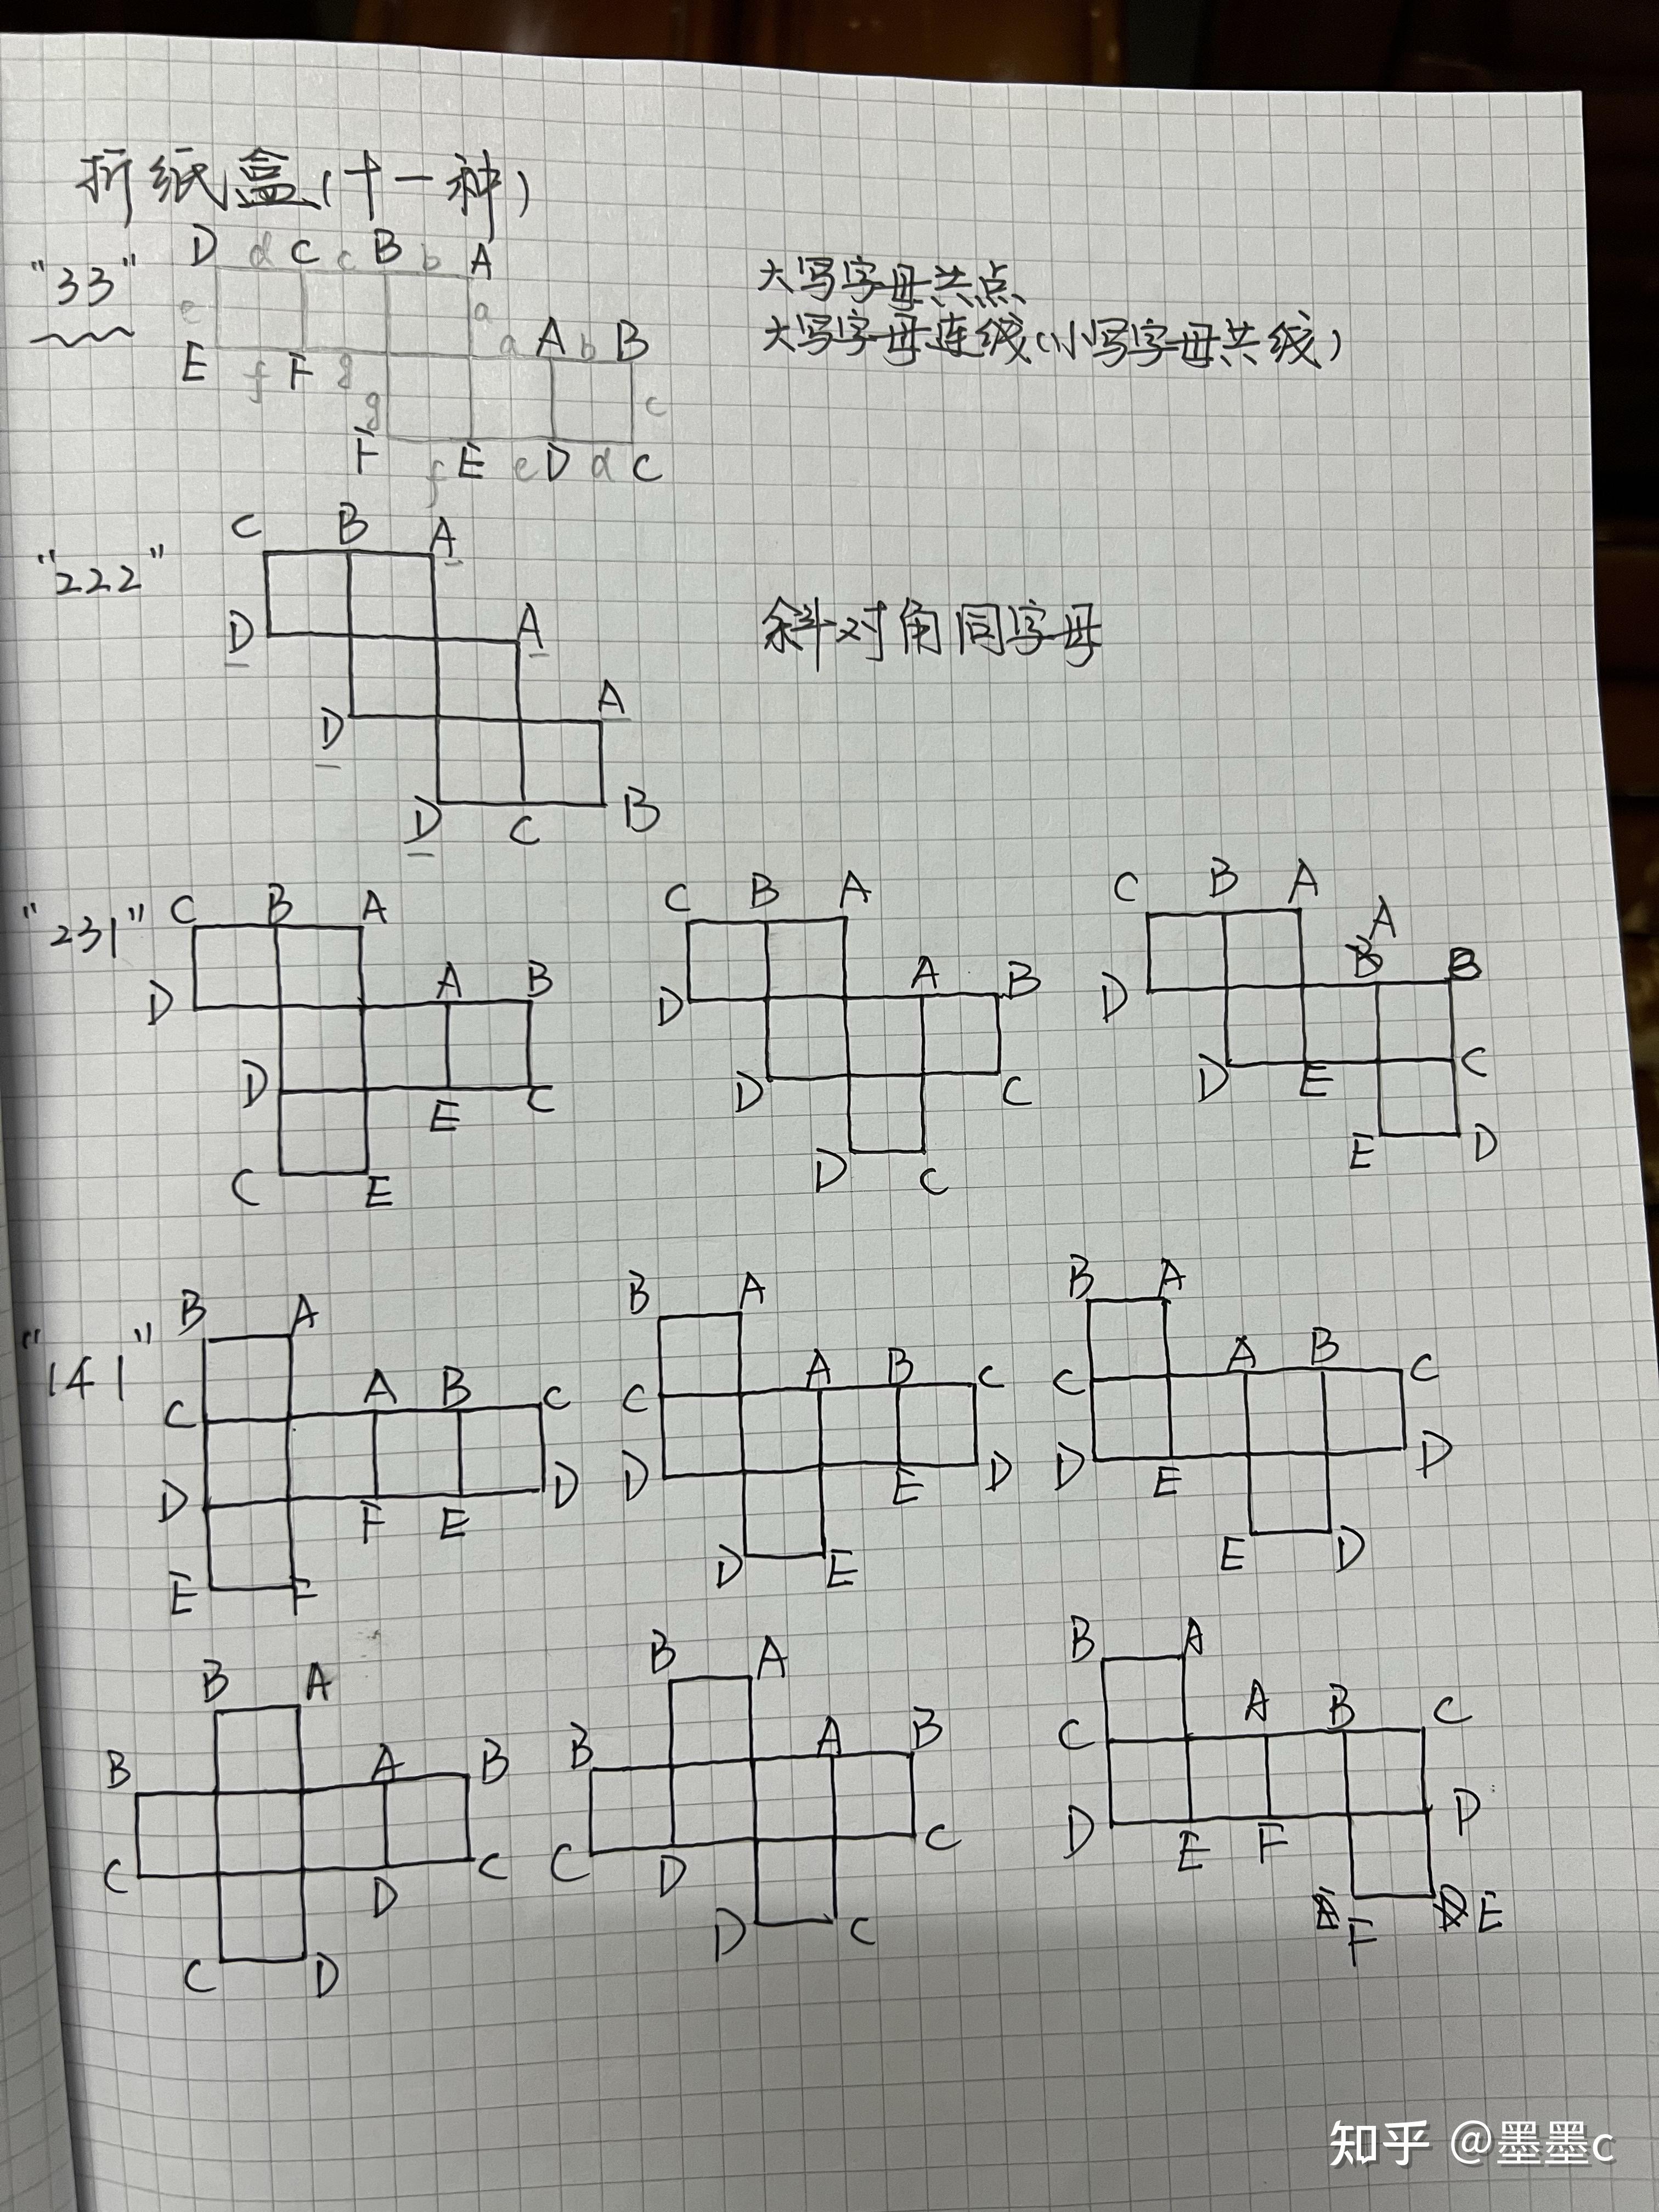 折纸盒(十一种)
D d C c B b A
"33"
大写字母共点
e a
a A b B
大写字母连线(小写字母共线)
E f F g
g c
F f E e D d C
C B A
"222"
D A
斜对角同字母
D A
D C B
"231"
C B A
C B A
C B A
D A B
D A B
D A B
D E C
D C
D E C
C E
D C
E D
"141"
B A
B A
B A
C A B C
C A B C
C A B C
D F E D
D E D
D E D
E F
D E
E D
B A
B A
B A
B A B
B A B
C A B C
C D C
C D C
D E F D
C D
D C
F E
知乎 @墨墨c